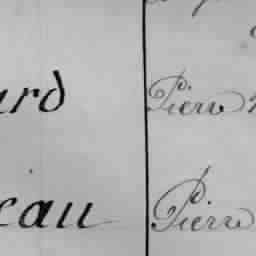 ard Pierre
eau Pierre